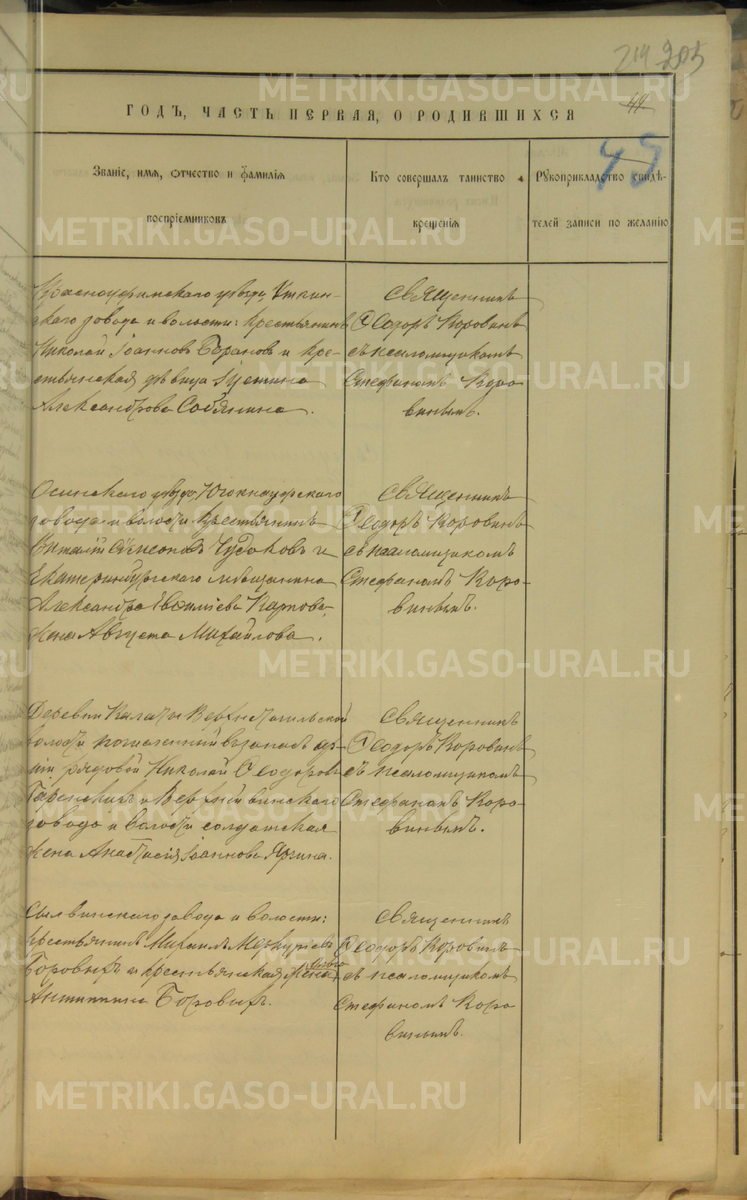 219 205
ГОДЪ, ЧАСТЬ ПЕРВАЯ, О РОДИВШИХСЯ
49
45
Званіе, имя, отчество и фамилія
воспріемниковъ
Кто совершалъ таинство
крещенія
Рукоприкладство свидѣ-
телей записи по желанію
Красноуфимскаго уѣзда, Уткин-
скаго завода и волости: крестьянинъ
Николай Іоанновъ Боранов и кре-
стьянская дѣвица Устина
Александрова Собянина.
Священникъ
Ѳеодоръ Коровинъ
съ псаломщикомъ
Стефаномъ Коро-
винымъ.
Осинскаго уѣзда, Югокнауфскаго
завода и волости крестьянинъ
Виталій Симеоновъ Чудаковъ и
Екатеринбургскаго мѣщанина
Александра Василіева Карпова,
жена Августа Михайлова.
Священникъ
Ѳеодоръ Коровинъ
съ псаломщикомъ
Стефаномъ Коро-
винымъ.
Деревни Калаты Верхнетагильской
волости
рядовой Николай Ѳеодоровъ
и Верхнейвинскаго
завода и волости солдатская
жена Анастасія Іоаннова Ярина.
Священникъ
Ѳеодоръ Коровинъ
съ псаломщикомъ
Стефаномъ Коро-
винымъ.
Сылвинскаго завода и волости:
крестьянинъ Михаилъ Меркурьевъ
Боровыхъ и крестьянская жена
Антипина Боровыхъ.
Священникъ
Ѳеодоръ Коровинъ
съ псаломщикомъ
Стефаномъ Коро-
винымъ.
METRIKI.GASO-URAL.RU
METRIKI.GASO-URAL.RU
METRIKI.GASO-URAL.RU
METRIKI.GASO-URAL.RU
METRIKI.GASO-URAL.RU
METRIKI.GASO-URAL.RU
METRIKI.GASO-URAL.RU
METRIKI.GASO-URAL.RU